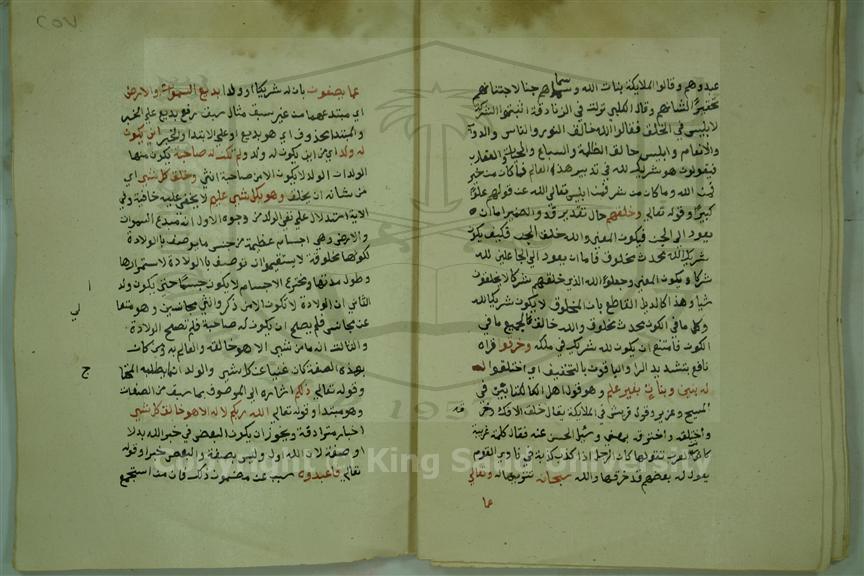 عبدوهم وقالوا الملايكة بنات الله وسماهم جنا لاجتنانهم
تحقيرا لشانهم وقال الكلبي نزلت في الزنادقة اثبتوا الشركة
لابليس في الخلق فقالوا الله خالق النور والناس والدواب
والانعام وابليس خالق الظلمة والسباع والحيات والعقارب
فيقولون هو شريك لله في تدبير هذا العالم فما كان من خير
فمن الله وما كان من شر فمن ابليس تعالى الله عن قولهم علوا
كبيرا وقوله تعالى وخلقهم حال بتقدير قد والضمير اما ان
يعود الى الجن فيكون المعنى والله خلق الجن فكيف يكون
شريك الله محدث مخلوق واما ان يعود الى الجاعلين لله
شركا ويكون المعنى وجعلوا لله الذي خلقهم شركا لا يخلقون
شيا وهذا كالدليل القاطع بان المخلوق لا يكون شريكا لله
وكل ما في الكون محدث مخلوق والله خالق لجميع ما في
الكون فامتنع ان يكون لله شريك في ملكه وخرقوا قراه
نافع بتشديد الرا والباقون بالتخفيف اي اختلقوا له
له بنين وبنات بغير علم وهو قول اهل الكتابين في
المسيح وعزير وقول قريش في الملائكة يقال خلق الافك وخرقه
واختلقه واخترقه بمعنى وسئل الحسن عنه فقال كلمة عربية
كانت العرب تقولها كان الرجل اذا كذب كذبة في نادي القوم
يقول له بعضهم قد خرقها والله سبحانه تنزيها له وتعالى
عما
عما يصفون بان له شريكا او ولدا بديع السموات والارض
اي مبتدعهما من غير سبق مثال رفع بديع على الخبر
والمبتدا محذوف اي هو بديع او على الابتدا والخبر انى يكون
له ولد اي من اين يكون له ولد ولم تكن له صاحبة يكون منها
الولد لان الولد لا يكون الا من صاحبة انثى وخلق كل شي اي
من شانه ان يخلق وهو بكل شي عليم لا يخفى عليه خافية وفي
الاية استدلال على نفي الولد من وجوه الاول انه مبدع السموات
والارض وهي اجسام عظيمة من جنس ما يوصف بالولادة
لكونها مخلوقة لا يستقيم ان توصف بالولادة لاستمرارها
وطول مدتها ومخترع الاجسام لا يكون جسما حتى يكون ولد
الثاني ان الولادة لا تكون الا من ذكر وانثى مجانسين وهو متعال
عن مجانس فلم يصلح ان يكون له صاحبة فلم تصلح الولادة
والثالث انه ما من شي الا هو خالقه والعالم به ومن كان
بهذه الصفة كان غنيا عن كل شي والولد انما يطلبه المحتاج
وقوله تعالى ذلكم اشارة الى الموصوف بما سبق من الصفات
وهو مبتدا وقوله تعالى الله ربكم لا اله الا هو خالق كل شي
اخبار مترادفة ويجوز ان يكون البعض في خبر الله بدلا
او صفة لان الله اول وليس بصفة والبعض خبرا وقوله
تعالى فاعبدوه سبب عن مضمون ذلك فان من استجمع
Copyright © King Saud University
195